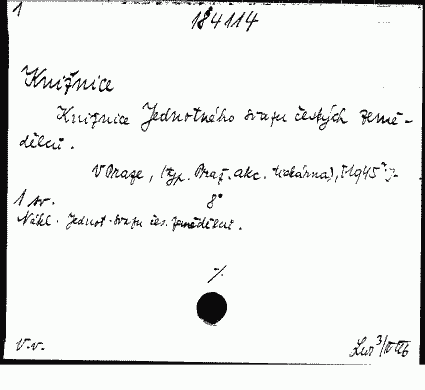 1
184114
Knižnice
Knižnice Jednotného svazu českých země-
dělců.
V Praze, (typ. Praž. akc. tiskárna), [1945-]-
1 sv. 8°
Nákl. Jednot. svazu čes. zemědělců.
v.v.